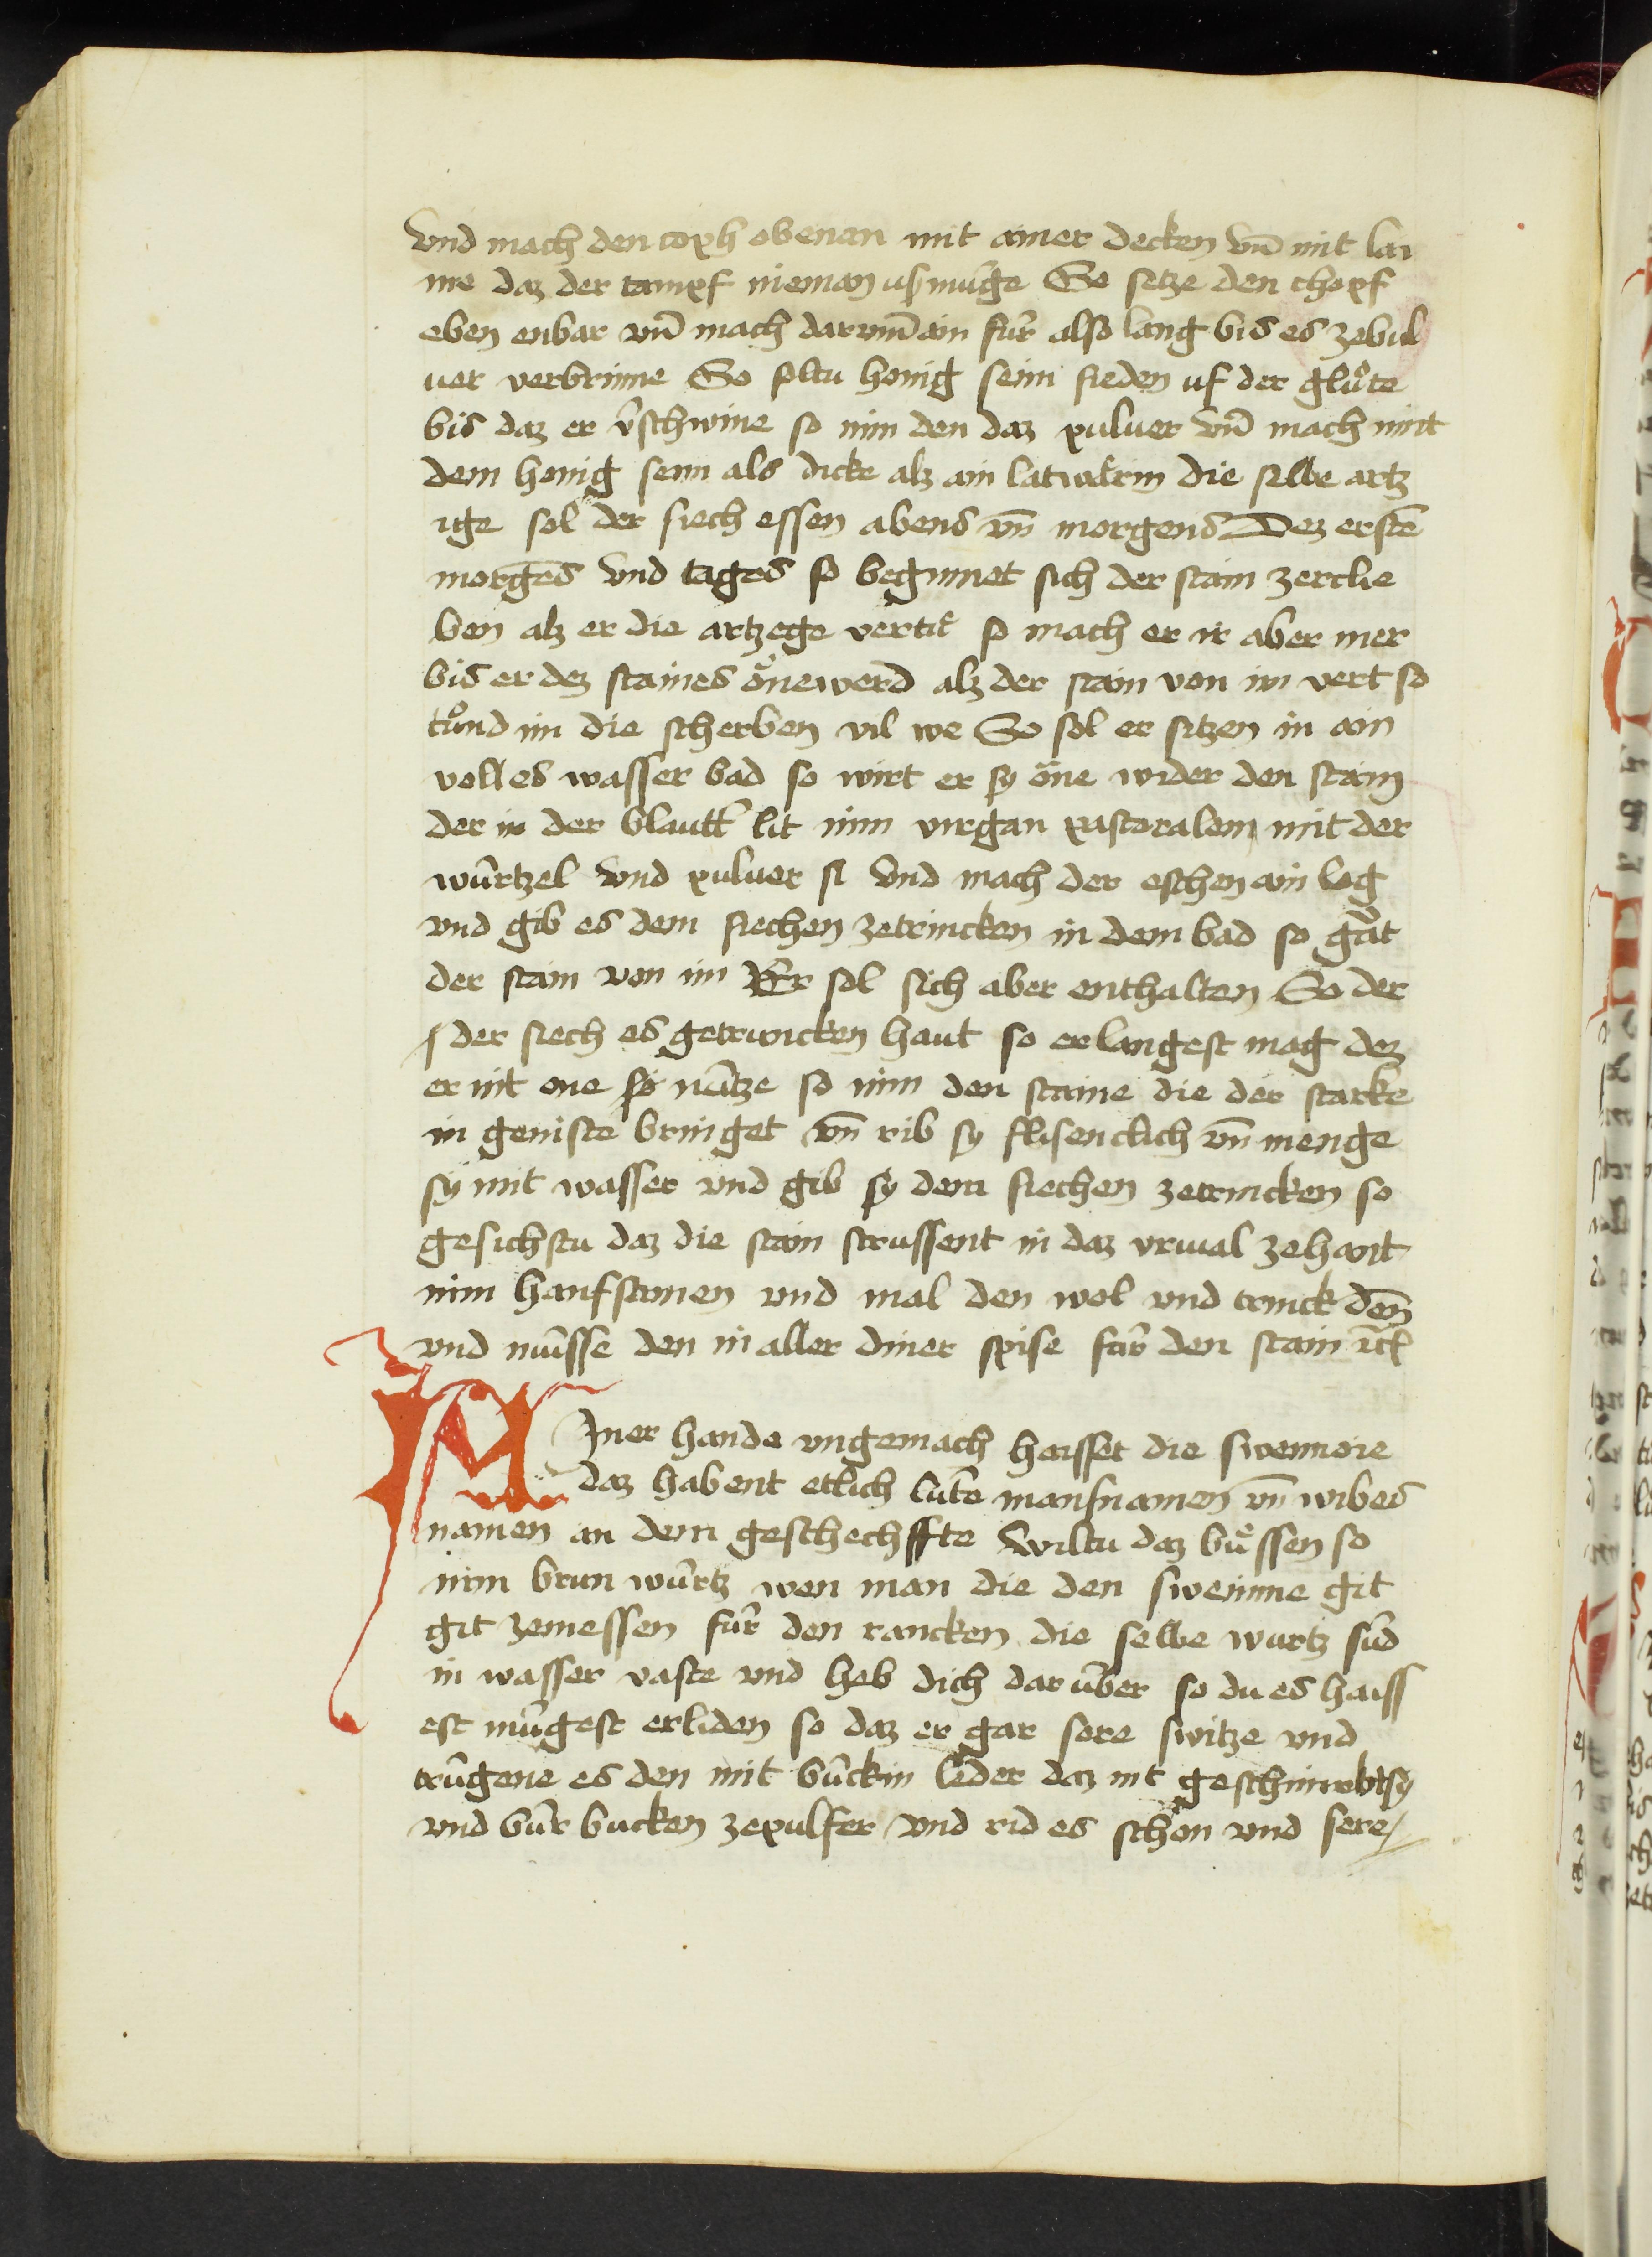 vnd mach den coph obenan mit ainer decken vn̄ mit lai
me daz der tampf nieman uſ muͤge So setze den chopf
eben enbar vn̄ mach darum̄ ain fuͤr also lang bis es zebul
uer verbrinne So soltu honig seim sieden uf der gluͦte
bis daz er v̄schwine so nim den daz puluer vn̄ mach mit
dem honig seim als dicke alz ain latwerin die selbe artz
ige sol der siech essen abens vn̄ morgens Dez ersten̄
morgēs vnd tages so beginnet sich der stain zerclie
ben alz er die artzege vertut so mach er ir aber mer
bis er dez staines oͤne werd alz der stain von im vert so
tuͦnd im die scherben vil we So sol er sitzen in ain
volles wasser bad so wirt er sy oͤne wider den stain
der in der blautt lit nim virgan pastoralem mit der
wuͤrtzel vnd puluer si vnd mach der eschen ain log
vnd gib es dem siechen zetrincken in dem bad so gāt
der stain von im Er sol sich aber enthalten So der
der siech es getruncken haut so er langest mag dez
er nit ene so netze so nim den staine die der starke
in geniste bringet vn̄ rib sy flisenclich vn̄ menge
sy mit wasser vnd gib sy dem siechen zetrincken so
gesichstu daz die stain strussent in daz vrinal zehant
nim hanfsamen vnd mal den wol vnd trinck den̄
vnd nuͤsse den in aller diner spise fuͤr den stain ꝛc
Iner hande vngemach haisset die swemoie
daz habent etlich luͤte mansnamen vn̄ wibes
namen an dem geschechffte wiltu daz buͤssen so
nim brun wuͤrtz wen man die den sweinne git
git zemessen fuͤr den rancken die selbe wurtz suͤd
in wasser vaste vnd heb dich daruͤber so du es haiss
est muͤgest erliden so daz er gar sere switze vnd
truͤgene es den mit buͤckin leder daz nit geschmirbt sy
vnd buͤr bucken zepulfer vnd rid es schon vnd sere